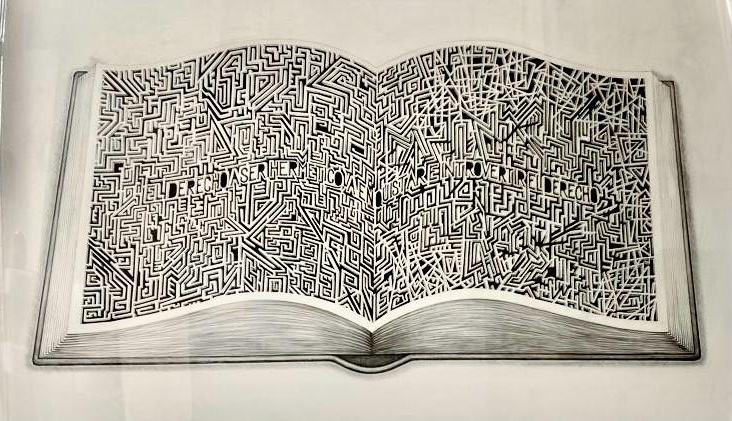 DERECHO A SER HERMETICO A ENQUISTAR E INTROVERTIR EL DERECHO